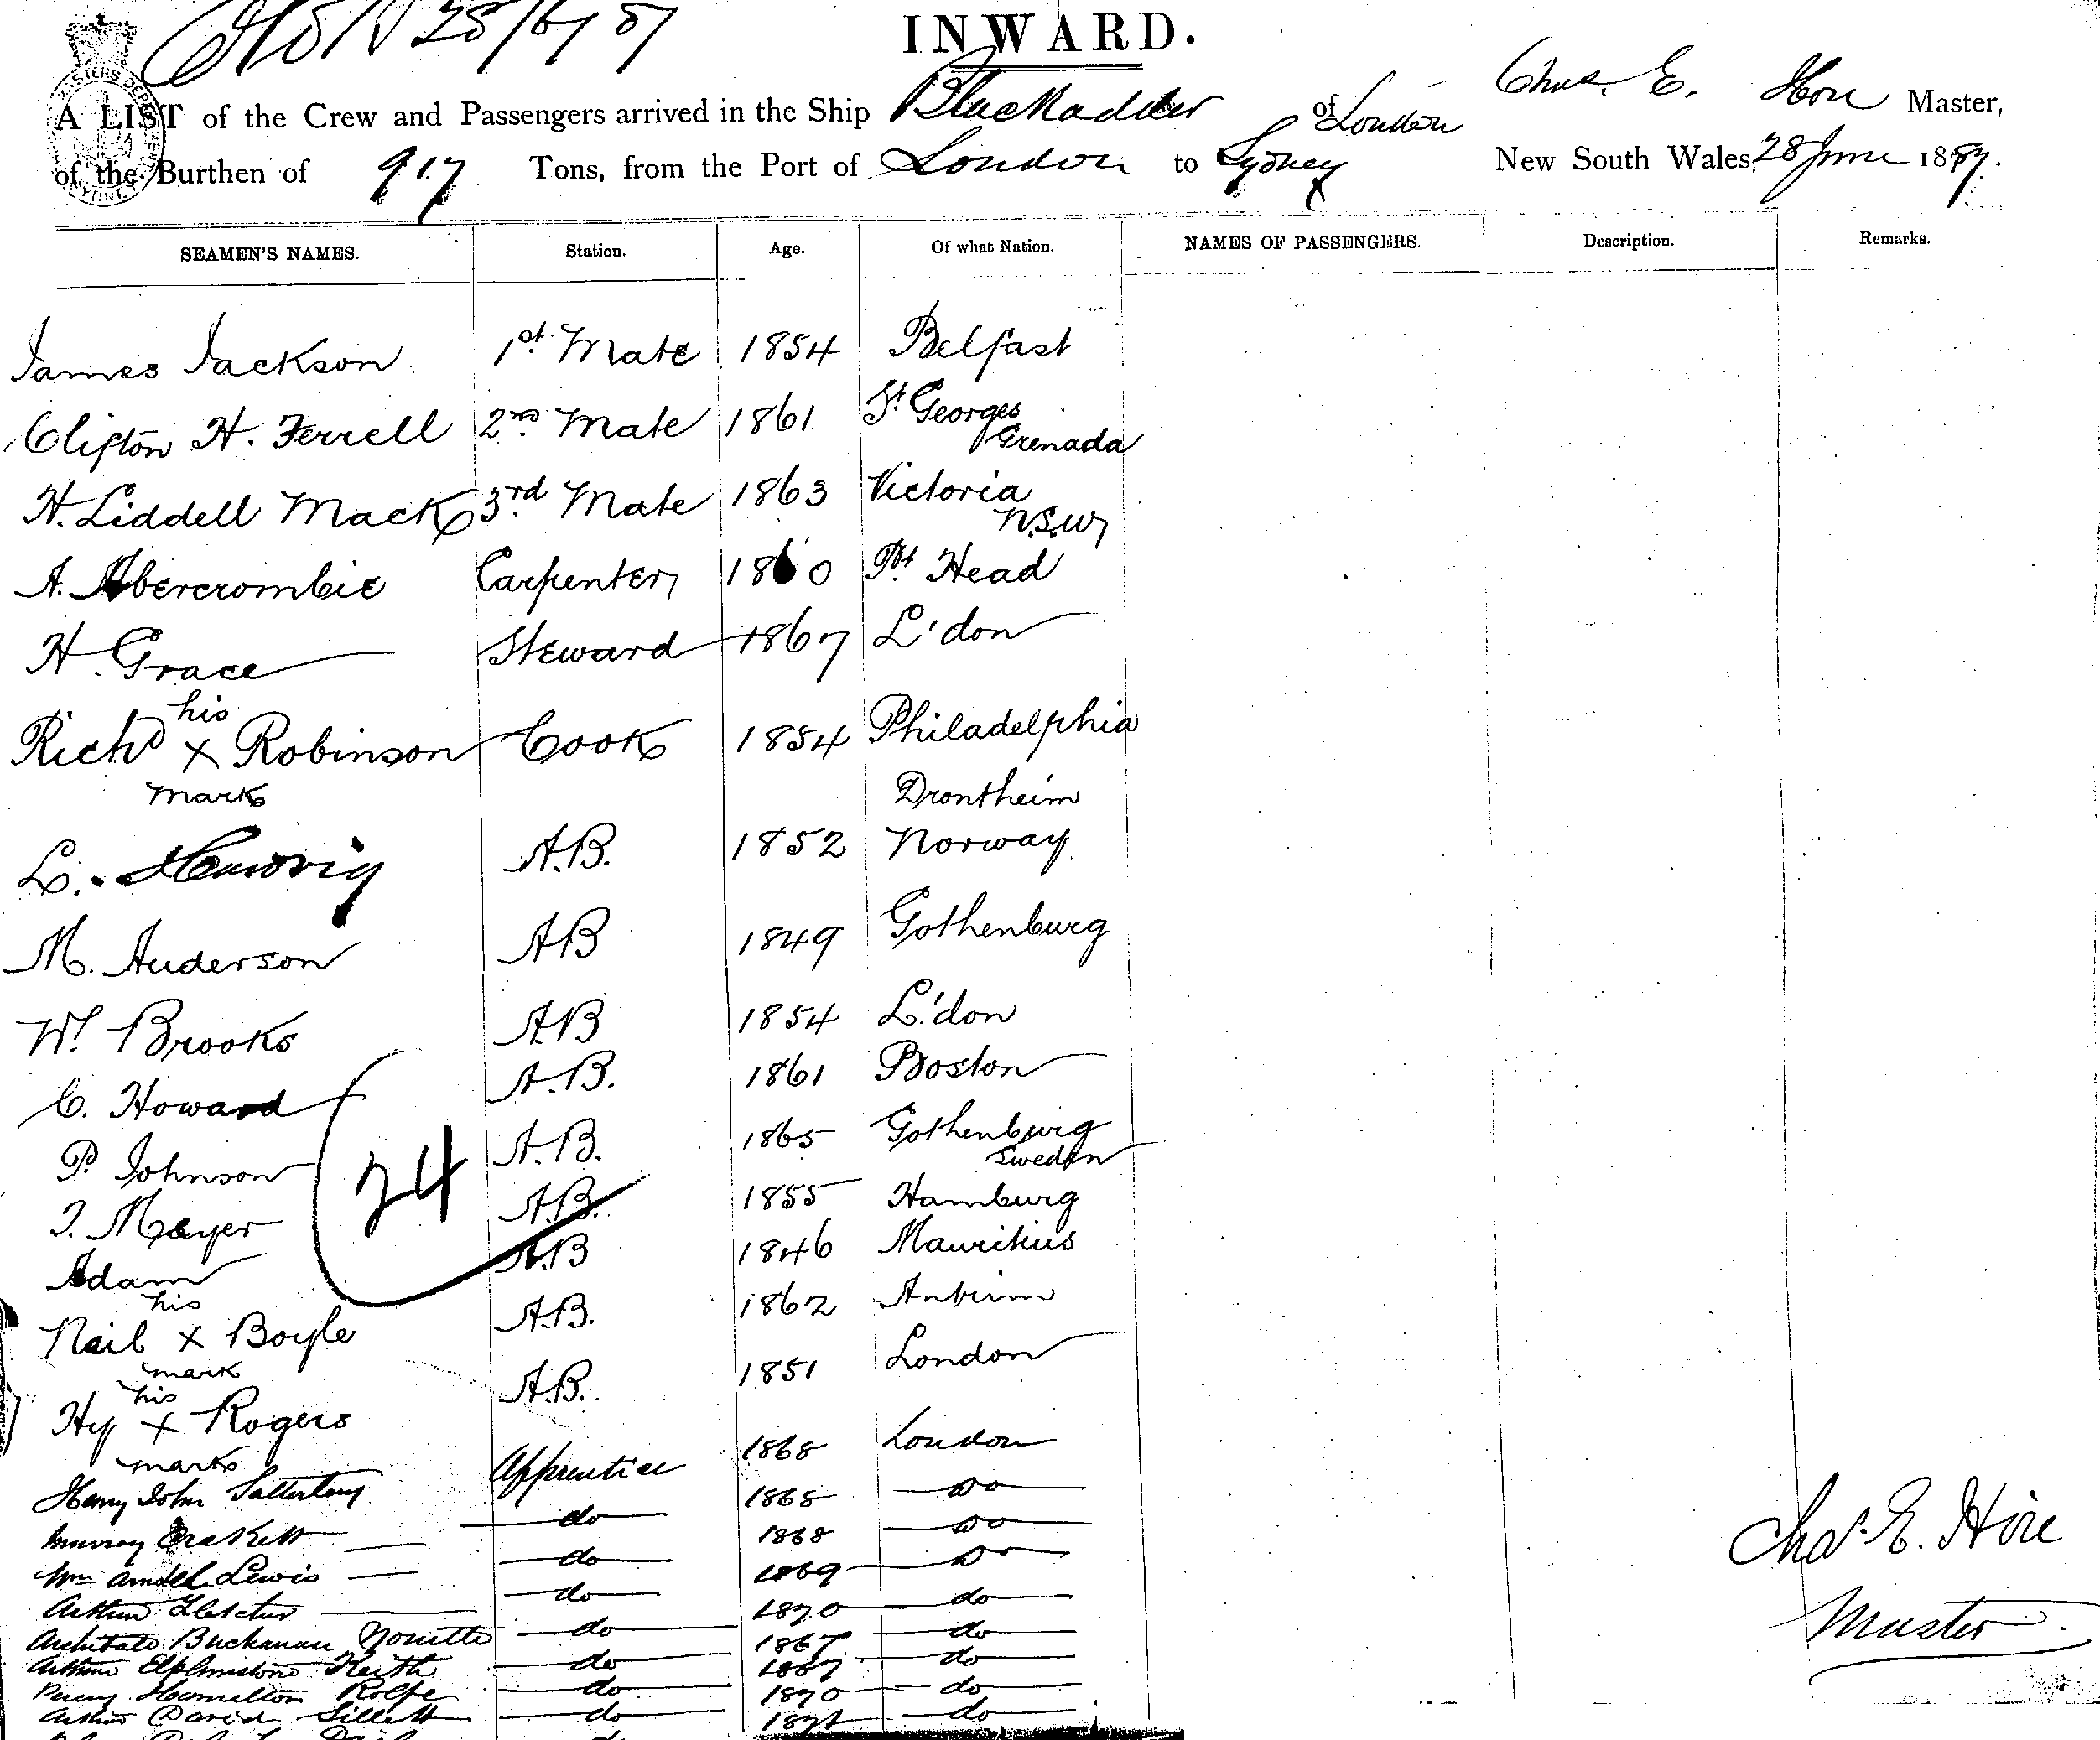 28/6/87
INWARD.
A LIST of the Crew and Passengers arrived in the Ship Blackadder of London Chas. E. Hore Master,
of the Burthen of 917 Tons, from the Port of London to Sydney New South Wales 28 June 1887.
SEAMEN'S NAMES. Station. Age. Of what Nation. NAMES OF PASSENGERS. Description. Remarks.
James Jackson 1st Mate 1854 Belfast
Clifton H. Ferrell 2nd Mate 1861 St Georges
Grenada
H. Liddell Mack 3rd Mate 1863 Victoria
N.S.W
A. Abercrombie Carpenter 1860 Pt Head
H. Grace Steward 1867 L'don
his
Richd x Robinson Cook 1854 Philadelphia
mark
Drontheim
L. A.B. 1852 Norway
M. Anderson AB 1849 Gothenburg
W. Brooks AB 1854 L'don
C. Howard A.B. 1861 Boston
P. Johnson A.B. 1865 Gothenburg
Sweden
24
J. Meyer A.B. 1855 Hamburg
Adam A.B 1846 Mauritius
his
Neil x Boyle A.B. 1862 Antrim
mark
his
Hy x Rogers A.B. 1851 London
mark
Harry John Satterley Apprentice 1868 London
Murray do 1868 do
Wm Arndell Lewis do 1868 do
Arthur Fletcher do 1869 do
Archibald Buchanan do 1870 do
Arthur Elphinstone Keith do 1867 do
Percy Hamilton Rolfe do 1867 do
Arthur David Sillett do 1870 do
do 1871 do
Chas. E. Hore
Master